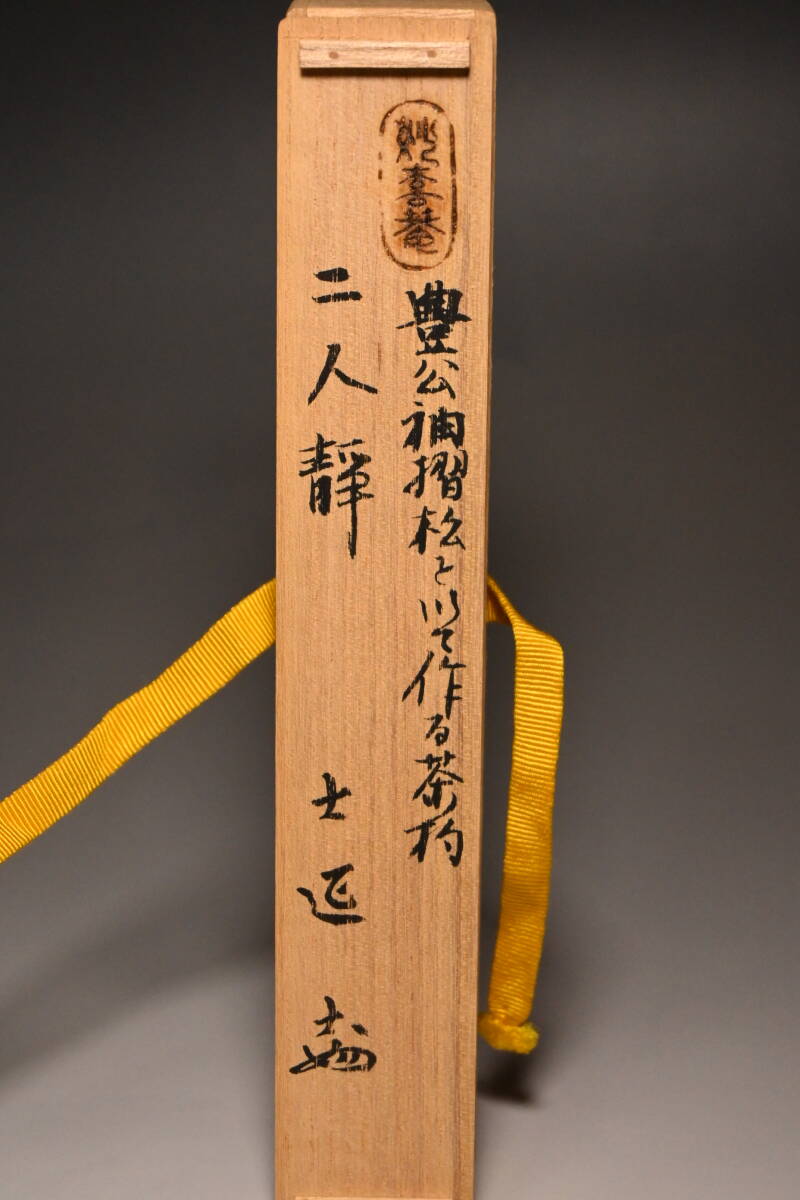 妙喜菴
豊公袖摺松を以て作る茶杓
二人静
士延